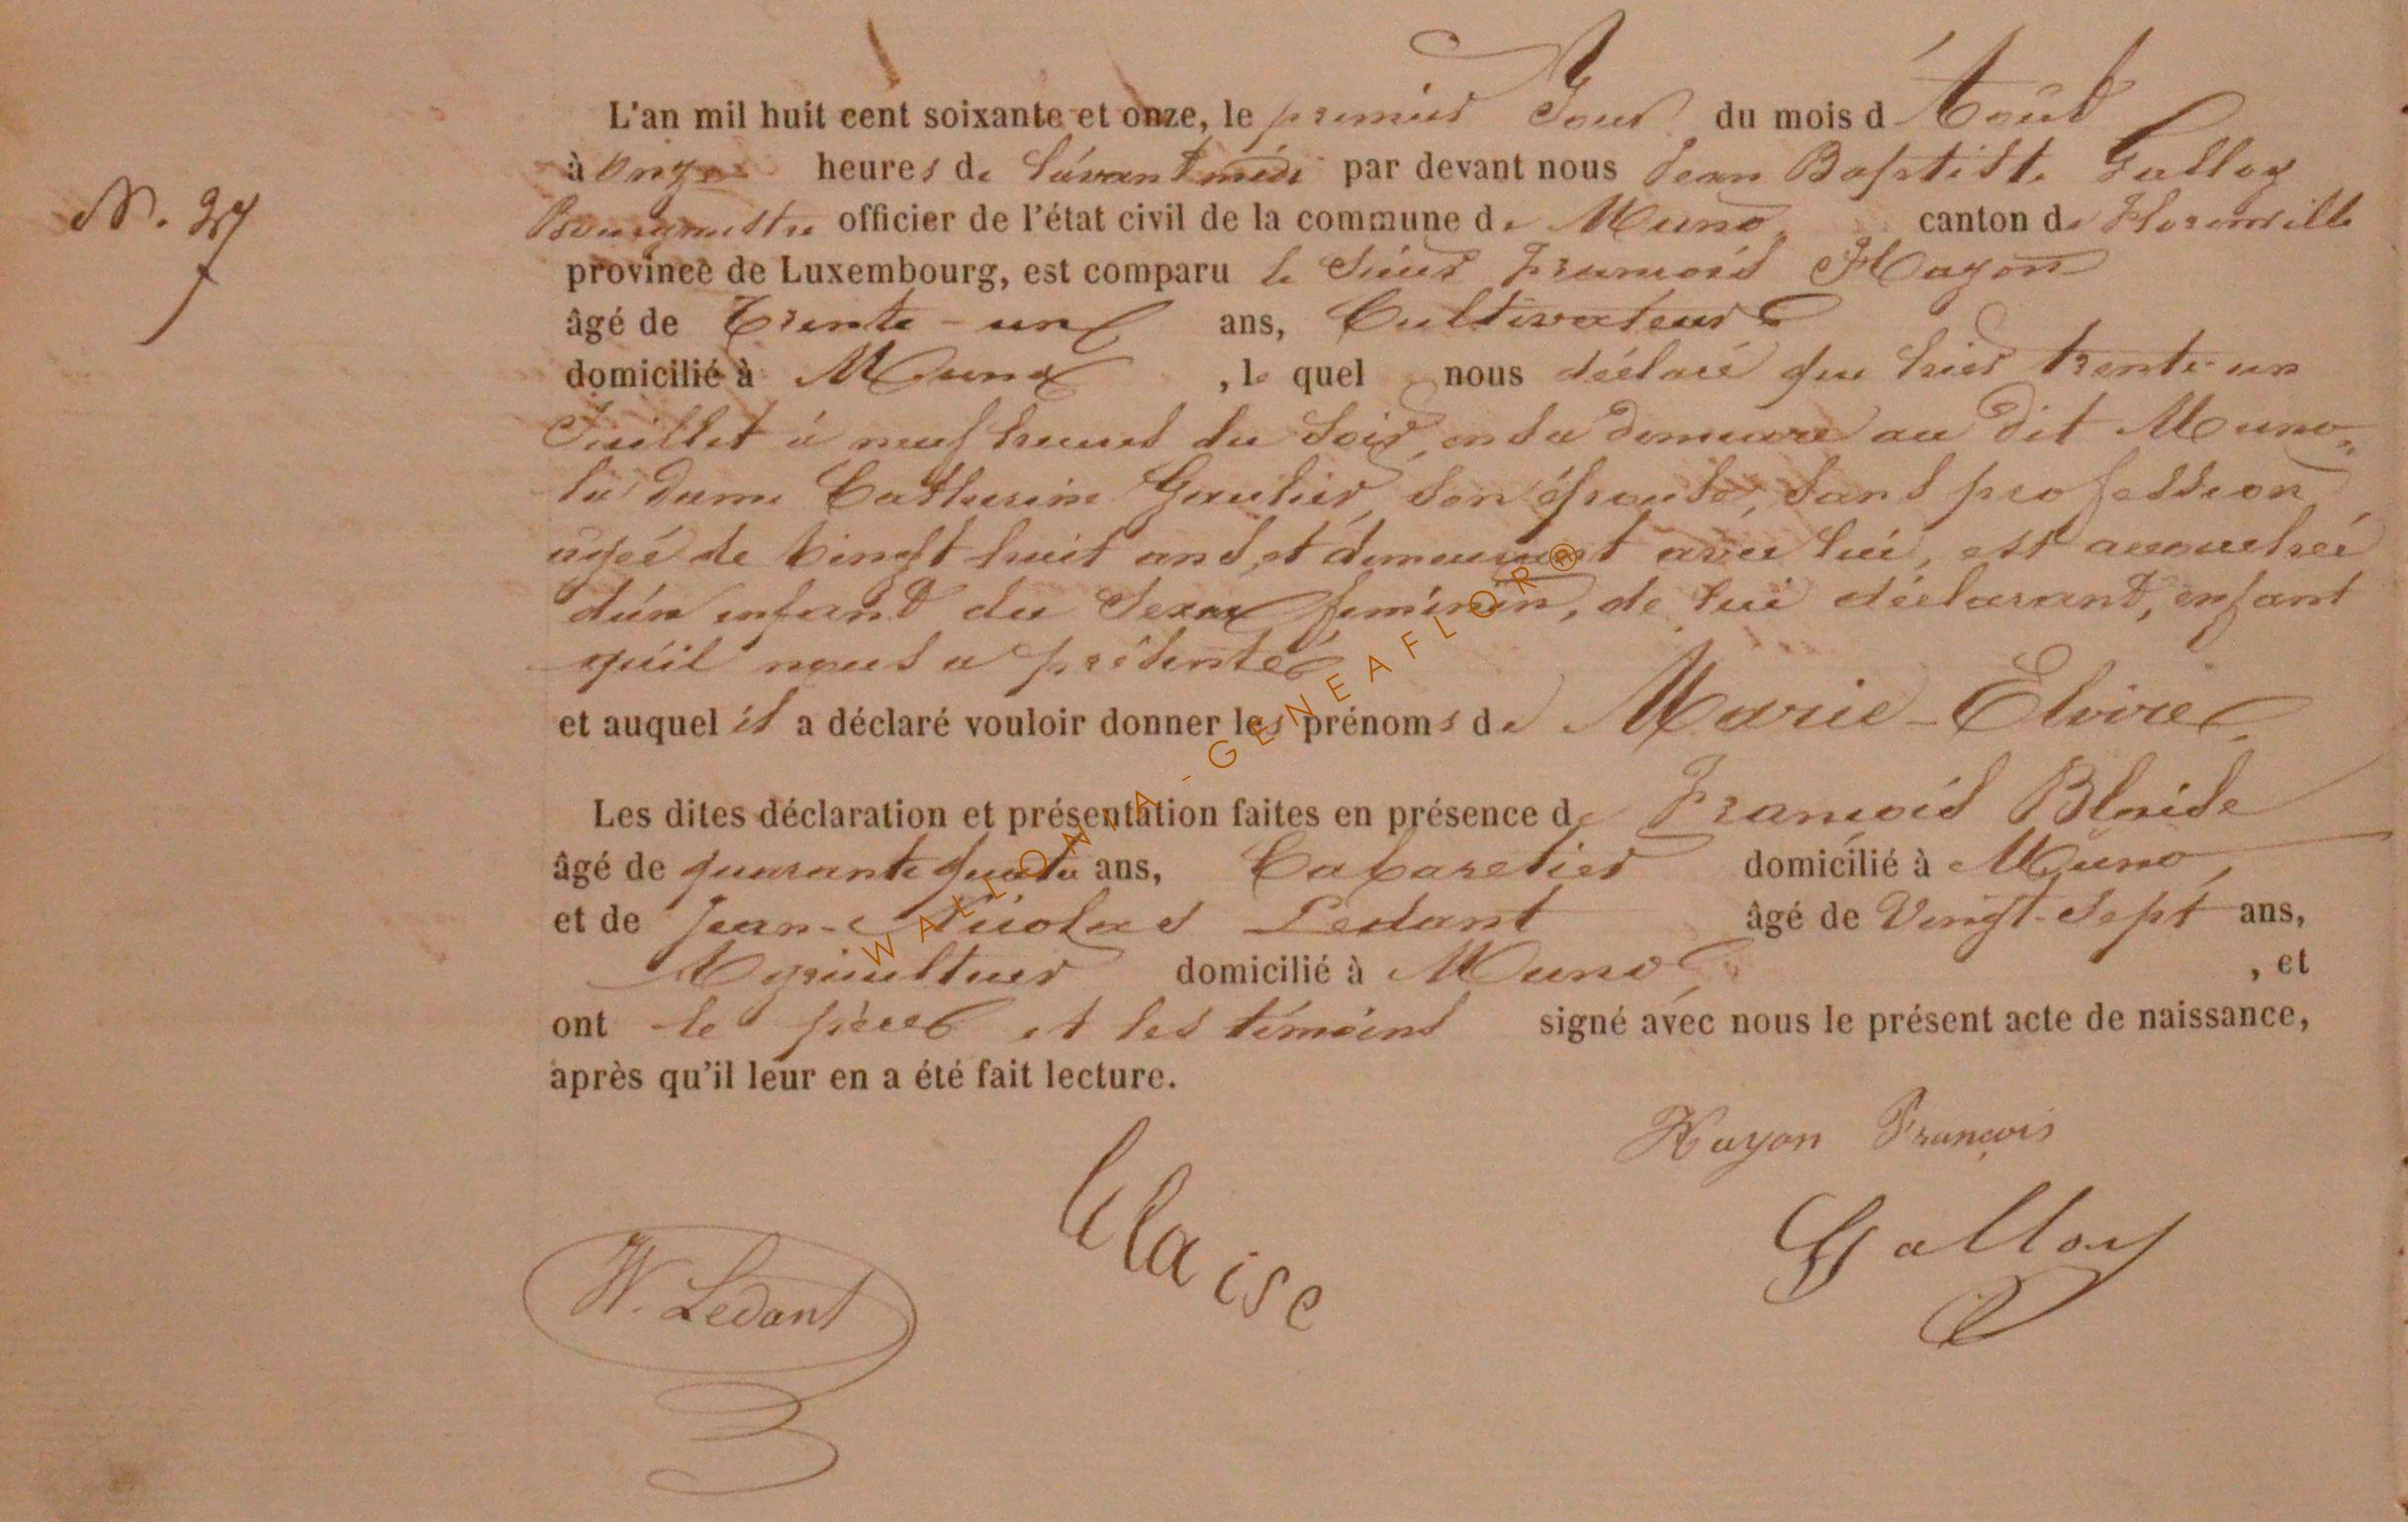 N. 27
L'an mil huit cent soixante et onze, le premier Jour du mois d'Août
à onze heures de l'avant midi par devant nous Jean Baptiste Galloy
Bourgmestre officier de l'état civil de la commune de Muno, canton de Florenville
province de Luxembourg, est comparu le Sieur François Hayon
âgé de Trente-un ans, Cultivateur
domicilié à Muno, le quel nous déclaré que hier trente-un
Juillet à neuf heures du Soir, en sa demeure au dit Muno
la dame Catherine Gaulier, son épouse, sans profession
agée de vingt huit ans, et demeurant avec lui, est accouchée
d'un enfant du Sexe feminin, de lui déclarant, enfant
qu'il nous a présenté
et auquel il a déclaré vouloir donner les prénoms de Marie-Elvire.
Les dites déclaration et présentation faites en présence de François Blaise
âgé de quarante quatre ans, Cabaretier domicilié à Muno,
et de Jean-Nicolas Ledant âgé de Vingt-Sept ans,
Agriculteur domicilié à Muno, et
ont le père et les témoins signé avec nous le présent acte de naissance,
après qu'il leur en a été fait lecture.
Hayon François
Blaise
Galloy
N. Ledant
WALLONIA-GENEAFLOR®